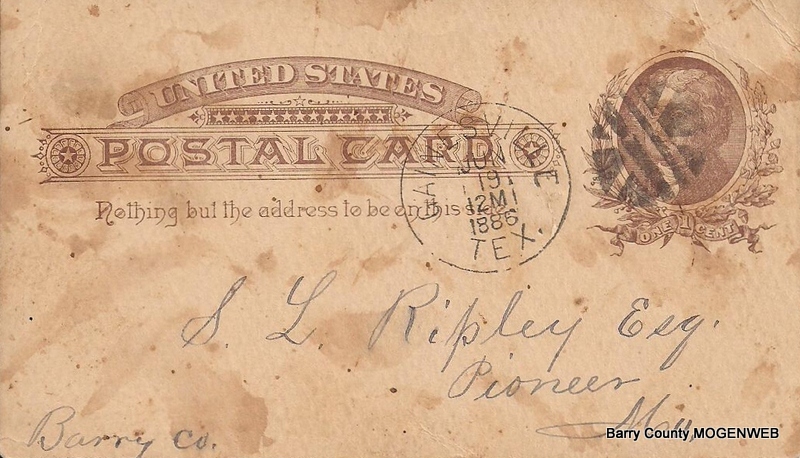 UNITED STATES
POSTAL CARD
Nothing but the address to be on this side.
GAINESVILLE
JUN
19
12M
1886
TEX.
ONE 1 CENT
S. L. Ripley Esq.
Pioneer
Mo.
Barry Co.
Barry County MOGENWEB